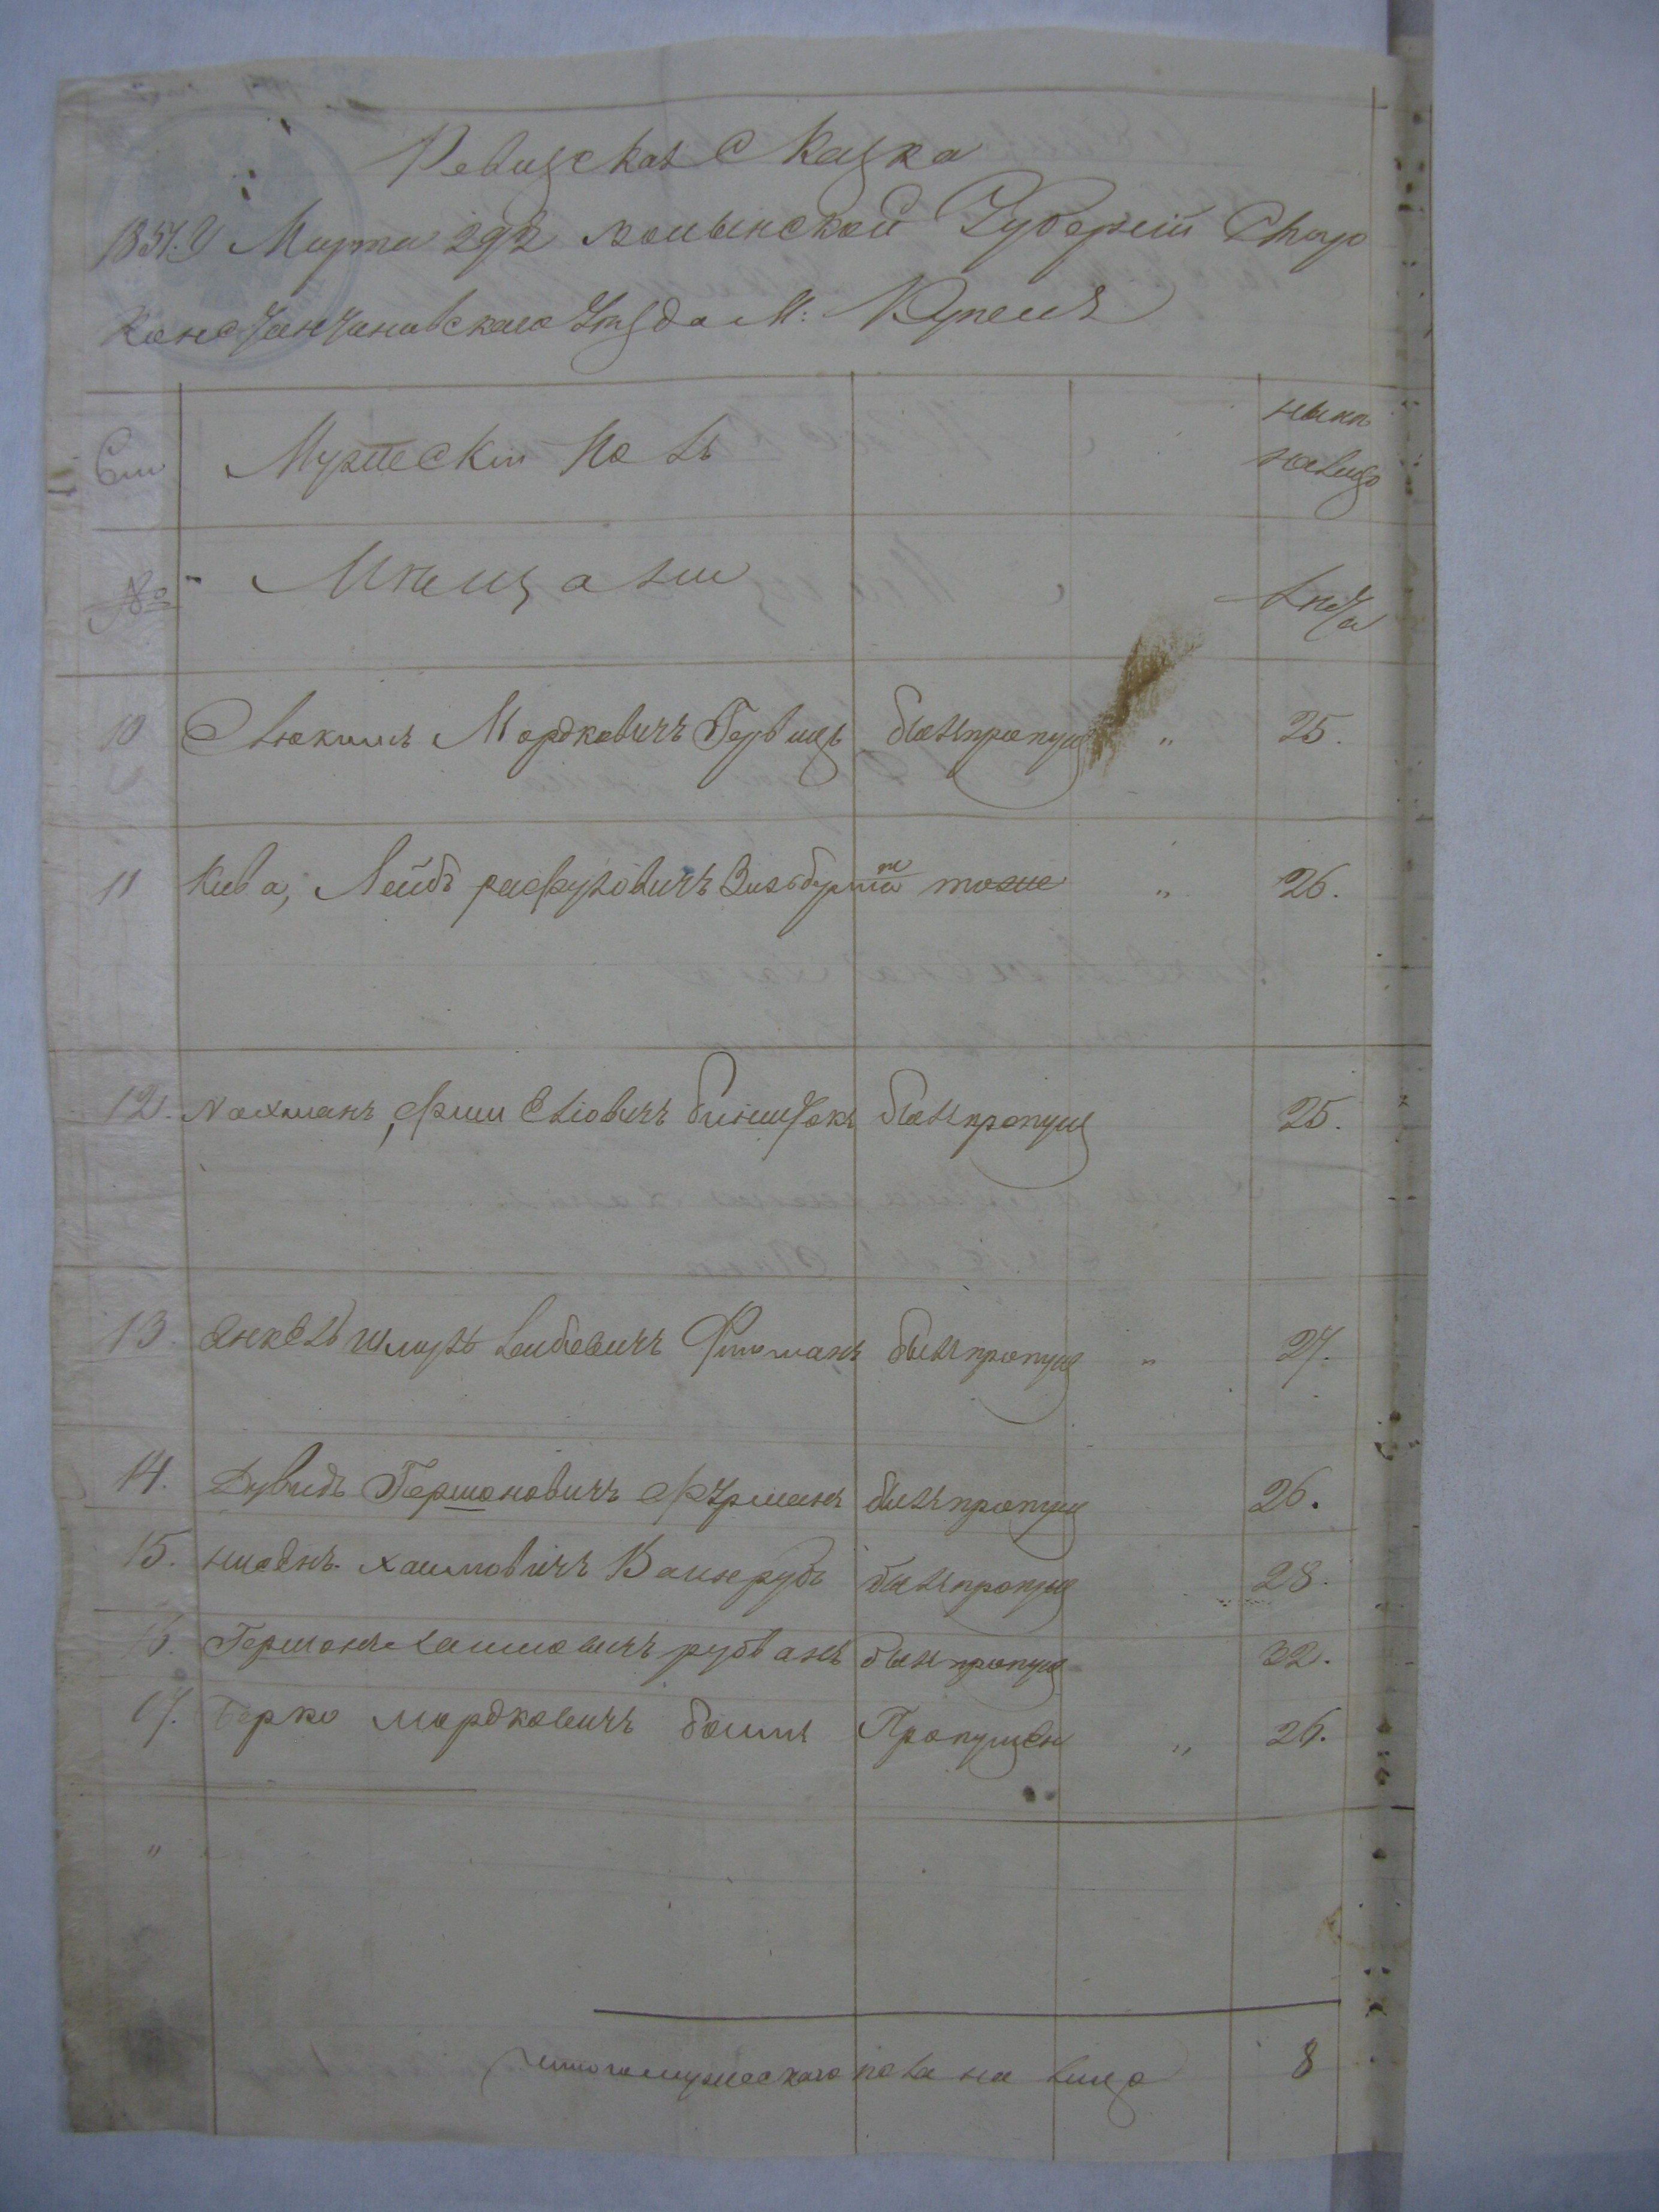 Ревизская Сказка
1851. Марта 29 д волынской Губерній Старо
Константиновскаго Уезда М: Купеля
Мужескій Полъ
ныне
налицо
№
Мещани
лета
10 Мордковичъ Гурвицъ былъ пропущ " 25.
11 Кива, Лейбъ рафуловичъ тоже " 26.
12. Нахманъ, фиш Еліовичъ былъ пропущ 25.
13. Янкель шмуль Лейбовичъ былъ пропущ " 27.
14. Дувидъ Гершоновичъ Фурманъ былъ пропущ 26.
15. Хаимовичъ Ваинрубъ былъ пропущ 28.
16. Гершонъ Хаимовичъ былъ пропущ 32.
17. Берко мордковичъ Боимъ Пропущен " 26.
"
итого мужескаго пола на лицо 8